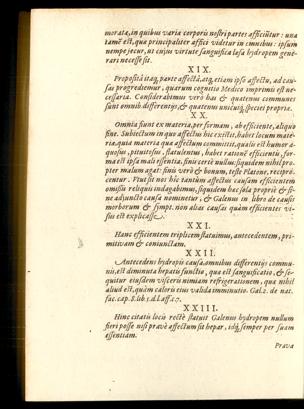 morata, in quibus varia corporis nostri partes afficiũtur: una
tamẽ est, qua principaliter affici videtur in omnibus: ipsum
nempe jecur, ut cujus virtute sanguifica læsa hydropem gene-
rari necesse sit.
XIX.
Proposita itaq; parte affectâ, atq; etiam ipso affectu, ad cau-
sas progrediemur, quarum cognitio Medico imprimis est ne-
cessaria. Considerabimus verò has & quatenus communes
sunt omnib. differentijs, & quatenus unicuiq; speciei propriæ.
XX.
Omnia fiunt ex materia, per formam, ab efficiente, aliquo
fine. Subjectum in quo affectus hic existit, habet locum mate-
riæ, quia materia qua affectum committit, qualis est humor a-
quosus, pituitosus, flatulentus, habet rationẽ efficientis, for-
ma est ipsa mali essentia. finis certè nullus: siquidem nihil pro-
pter malum agat: finis verò & bonum, teste Platone, recipro-
centur. Fiat sit nos hic tantùm affectus causam efficientem
omissis reliquis indagabimus, siquidem hæc sola propriè & si-
ne adjuncto causa nominetur, & Galenus in libro de causis
morborum & sympt. non alias causas quàm efficientes vi-
sus est explicasse.
XXI.
Hanc efficientem triplicem statuimus, antecedentem, pri-
mitivam & coniunctam.
XXII.
Antecedens hydropis causa, omnibus differentijs commu-
nis, est diminuta hepatis functio, quæ est sanguificatio, & se-
quitur ejusdem visceris nimiam refrigerationem, quæ nihil
aliud est, quàm caloris ejus valida imminutio. Gal. 2. de nat.
fac. cap. 8. lib. 5. d. l. aff. c. 7.
XXIII.
Hinc citatis locis rectè statuit Galenus hydropem nullum
fieri posse nisi pravè affectum sit hepar, idq; semper per suam
essentiam.
Prava